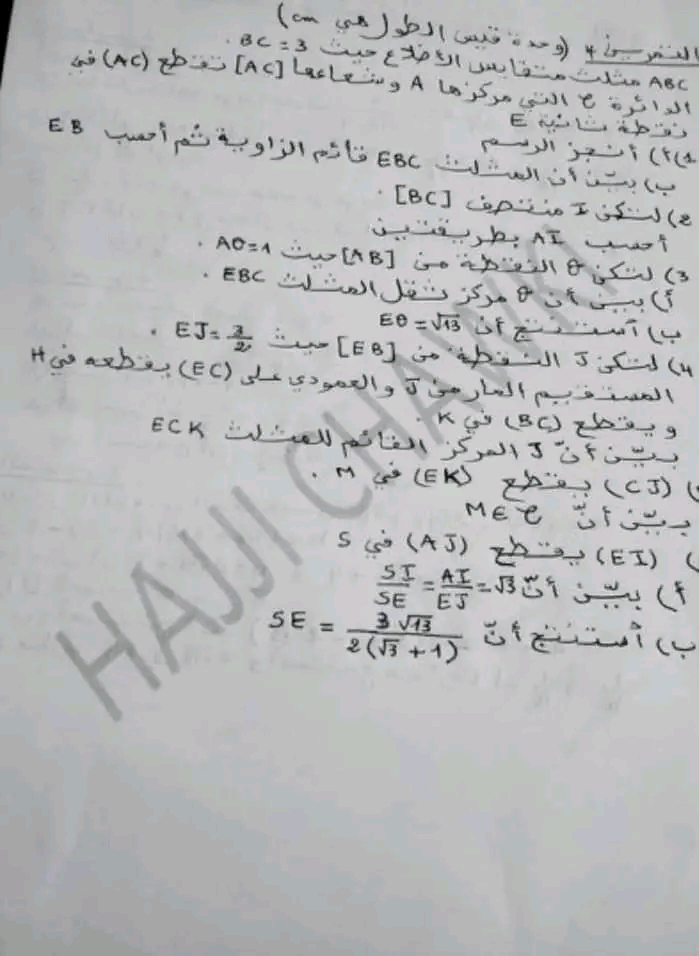 التمرين 4 (وحدة قيس الطول هي cm)
ABC مثلث متقايس الأضلاع حيث BC = 3.
الدائرة C التي مركزها A وشعاعها [AC] تقطع (AC) في
نقطة ثانية E
1) أ) أنجز الرسم
ب) بيّن أن المثلث EBC قائم الزاوية ثم أحسب EB
2) لتكن I منتصف [BC].
أحسب AI بطريقتين
3) لتكن θ النقطة من [AB] حيث Aθ=1.
أ) بيّن أن θ مركز ثقل المثلث EBC.
ب) أستنتج أن Eθ = √13
4) لتكن J النقطة من [EB] حيث EJ = 3/2.
المستقيم المار من J والعمودي على (EC) يقطعه في H
و يقطع (BC) في K.
بيّن أنّ J المركز القائم للمثلث ECK
) (CJ) يقطع (EK) في M.
بيّن أنّ M∈C
) (EI) يقطع (AJ) في S
أ) بيّن أنّ SI/SE = AI/EJ = √3
ب) أستنتج أنّ SE = 3√13 / 2(√3+1)
HAJJI CHAWKI